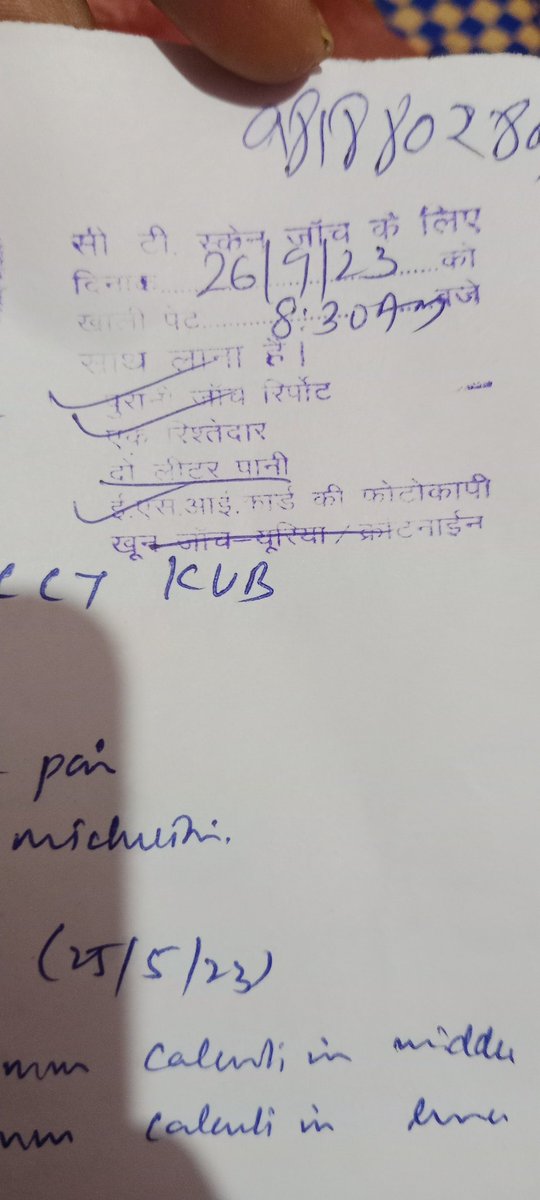 981880280
सी टी. स्केन जाँच के लिए
दिनांक......26/9/23......को
खाली पेट......8:30 Am बजे
साथ लाना है।
पुरानी जाँच रिर्पोट
एक रिश्तेदार
दो लीटर पानी
ई.एस.आई.कार्ड की फोटोकापी
खून जाँच यूरिया / क्रीटनाईन
CCT KUB
pain
(25/5/23)
mm calculi in middle
mm calculi in